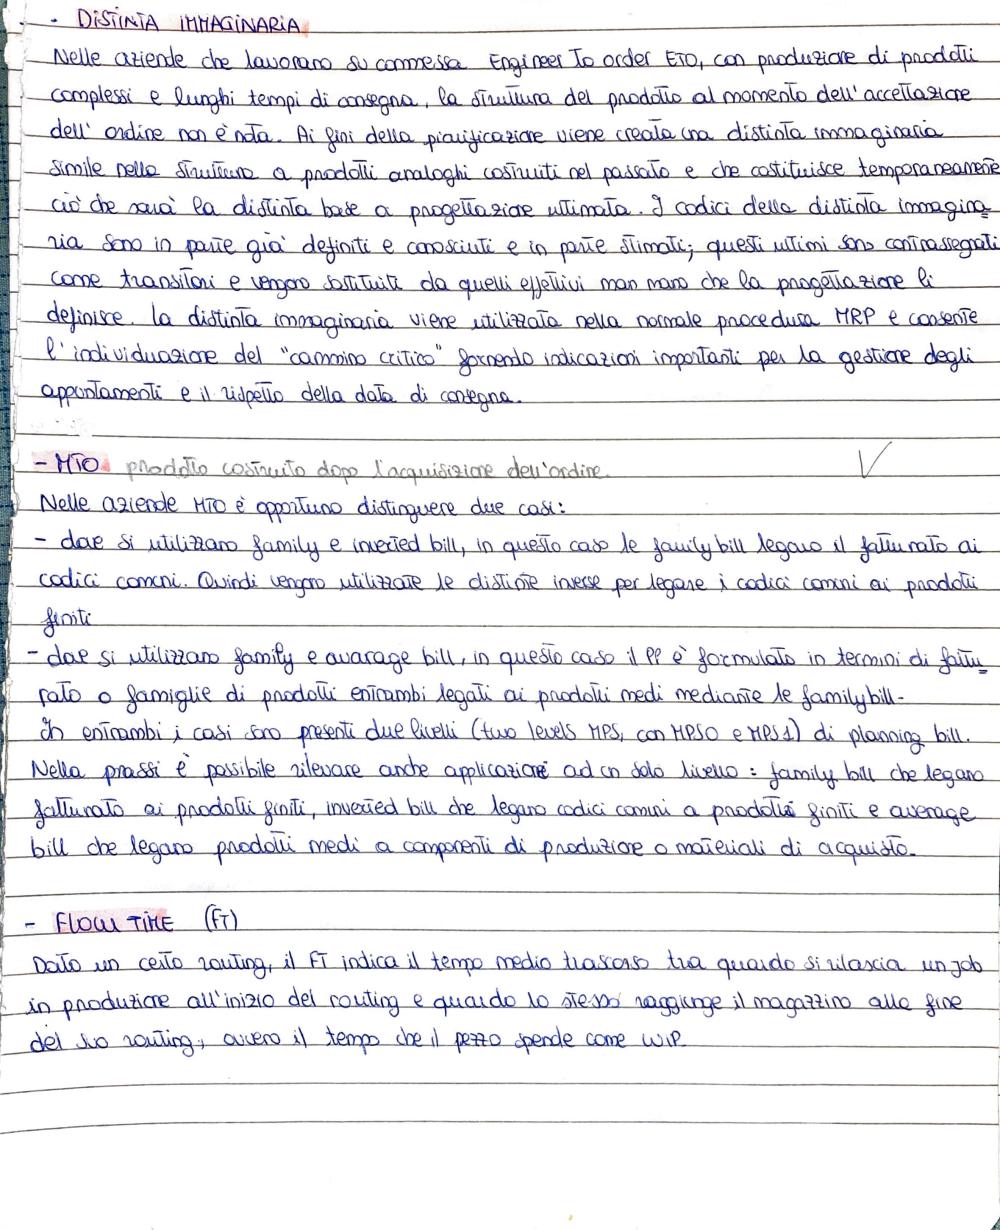 - DISTINTA IMMAGINARIA
Nelle aziende che lavorano su commessa Engineer To order ETO, con produzione di prodotti
complessi e lunghi tempi di consegna, la struttura del prodotto al momento dell'accettazione
dell'ordine non è nota. Ai fini della pianificazione viene creata una distinta immaginaria
simile nella struttura a prodotti analoghi costruiti nel passato e che costituisce temporaneamente
ciò che sarà la distinta base a progettazione ultimata. I codici della distinta immagina=
ria sono in parte già definiti e conosciuti e in parte stimati; questi ultimi sono contrassegati
come transitori e vengono sostituiti da quelli effettivi man mano che la progettazione li
definisce. La distinta immaginaria viene utilizzata nella normale procedura MRP e consente
l'individuazione del "cammino critico" fornendo indicazioni importanti per la gestione degli
appuntamenti e il rispetto della data di consegna.
- MTO prodotto costruito dopo l'acquisizione dell'ordine.
Nelle aziende MTO è opportuno distinguere due casi:
- dove si utilizzano family e inverted bill, in questo caso le family bill legano il fatturato ai
codici comuni. Quindi vengono utilizzate le distinte inverse per legare i codici comuni ai prodotti
finiti
- dove si utilizzano family e avarage bill, in questo caso il PP è formulato in termini di fattu=
rato o famiglie di prodotti entrambi legati ai prodotti medi mediante le family bill-
In entrambi i casi sono presenti due livelli (two levels MPS, con MPS0 e MPS1) di planning bill.
Nella prassi è possibile rilevare anche applicazioni ad un solo livello: family bill che legano
fatturato ai prodotti finiti, inverted bill che legano codici comuni a prodotti finiti e average
bill che legano prodotti medi a componenti di produzione o materiali di acquisto.
- FLOW TIME (FT)
Dato un certo routing, il FT indica il tempo medio trascorso tra quando si rilascia un job
in produzione all'inizio del routing e quando lo stesso raggiunge il magazzino alla fine
del suo routing, ovvero il tempo che il pezzo spende come WIP